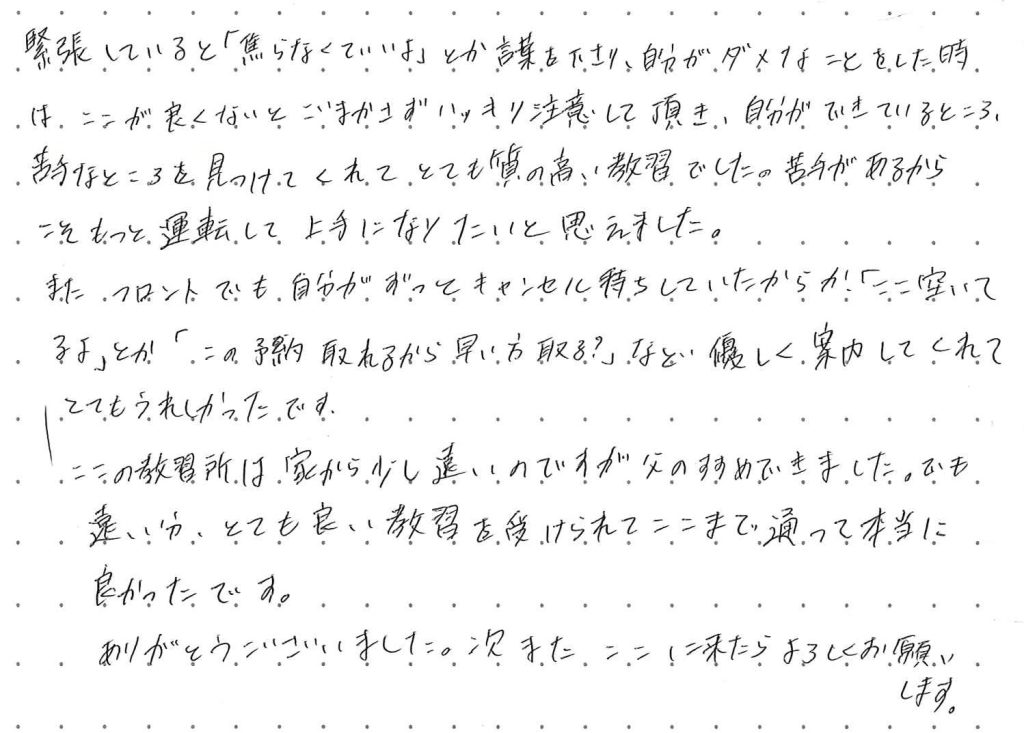 緊張していると「焦らなくていいよ」とか言葉を下さり、自分がダメなことをした時
は、ここが良くないとごまかさずハッキリ注意して頂き、自分ができているところ、
苦手なところを見つけてくれてとても質の高い教習でした。苦手があるから
こそもっと運転して上手になりたいと思えました。
またフロントでも自分がずっとキャンセル待ちしていたからか「ここ空いて
るよ」とか「この予約取れるから早い方取る?」など優しく案内してくれて
とてもうれしかったです.
ここの教習所は家から少し遠いのですが父のすすめできました。でも
遠い分、とても良い教習を受けられてここまで通って本当に
良かったです。
ありがとうございました。次またここに来たらよろしくお願い
します。